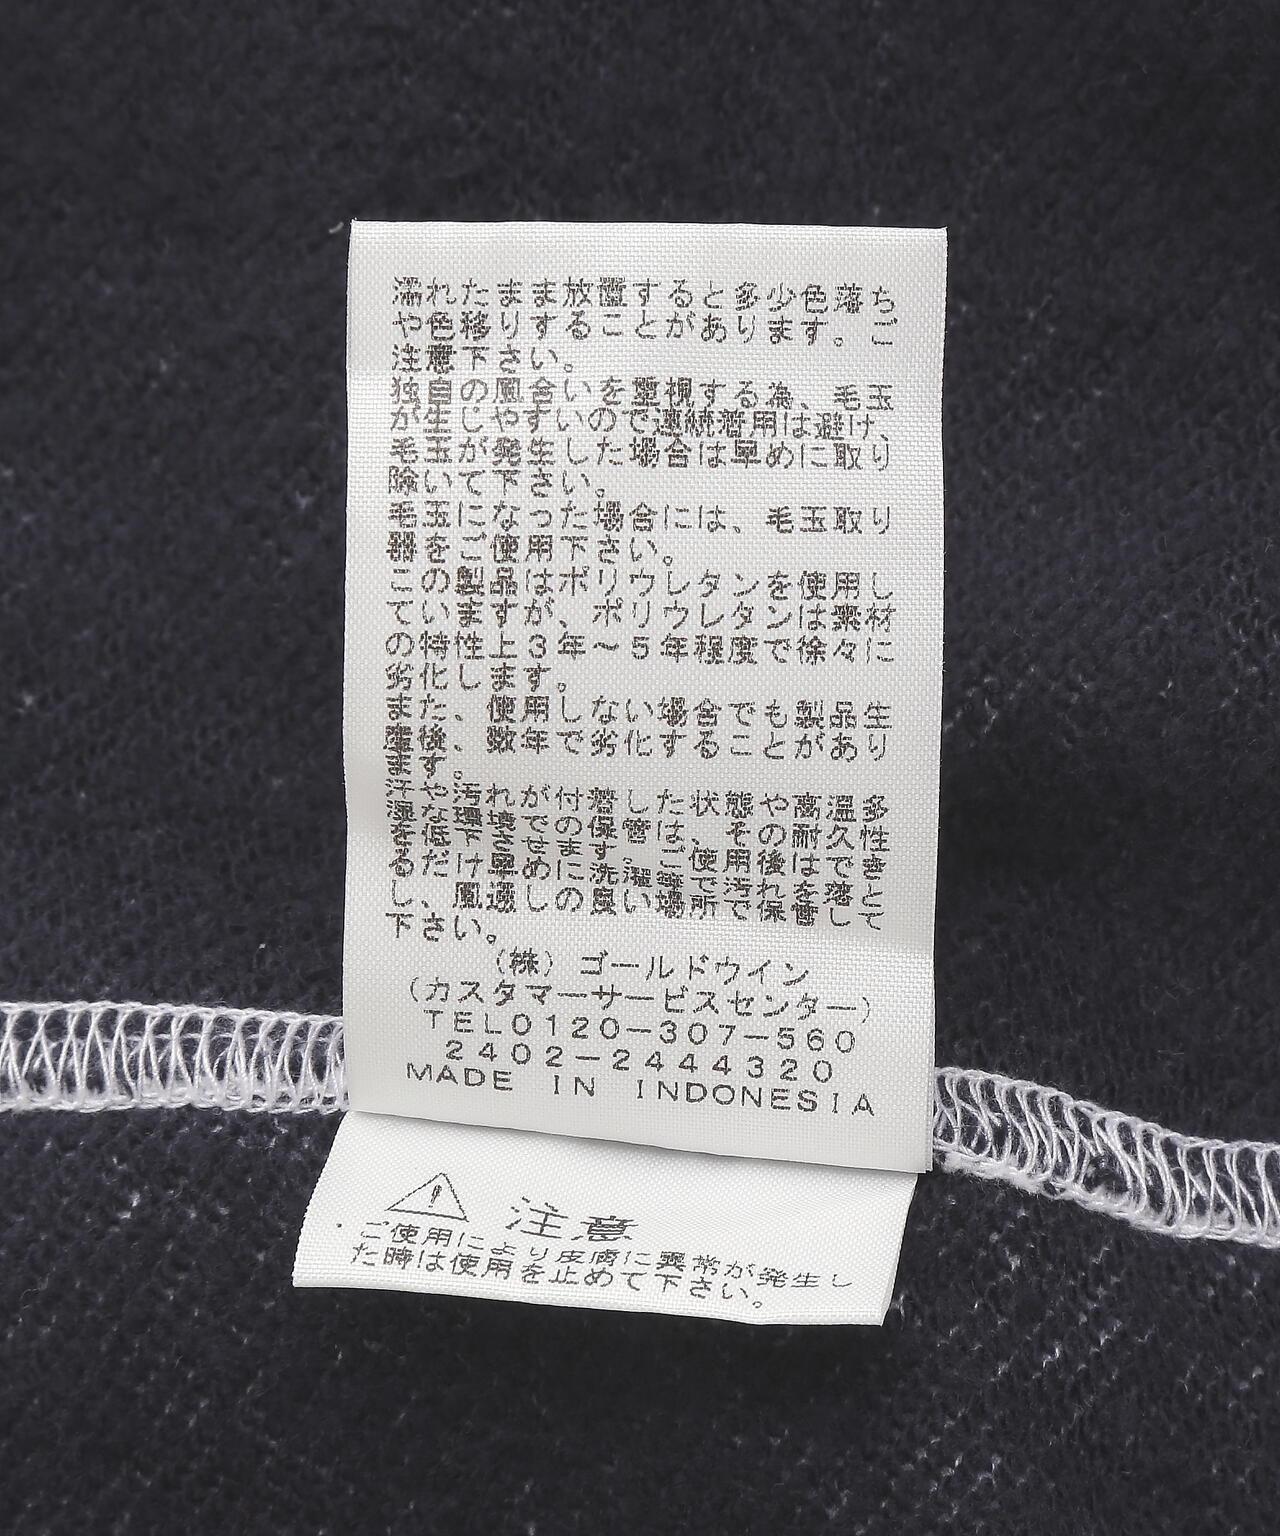 濡れたまま放置すると多少色落ち
や色移りすることがあります。ご
注意下さい。
独自の風合いを重視する為、毛玉
が生じやすいので連続着用は避け、
毛玉が発生した場合は早めに取り
除いて下さい。
毛玉になった場合には、毛玉取り
器をご使用下さい。
この製品はポリウレタンを使用し
ていますが、ポリウレタンは素材
の特性上3年～5年程度で徐々に
劣化します。
また、使用しない場合でも製品生
産後、数年で劣化することがあり
ます。
汗や汚れが付着した状態や高温多
湿な環境での保管は、その耐久性
を低下させます。ご使用後はできる
だけ早めに洗濯等で汚れを落とし、
風通しの良い場所で保管して
下さい。
(株) ゴールドウイン
(カスタマーサービスセンター)
TEL0120-307-560
2402-2444320
MADE IN INDONESIA
注意
・ご使用により皮膚に異常が発生し
た時は使用を止めて下さい。